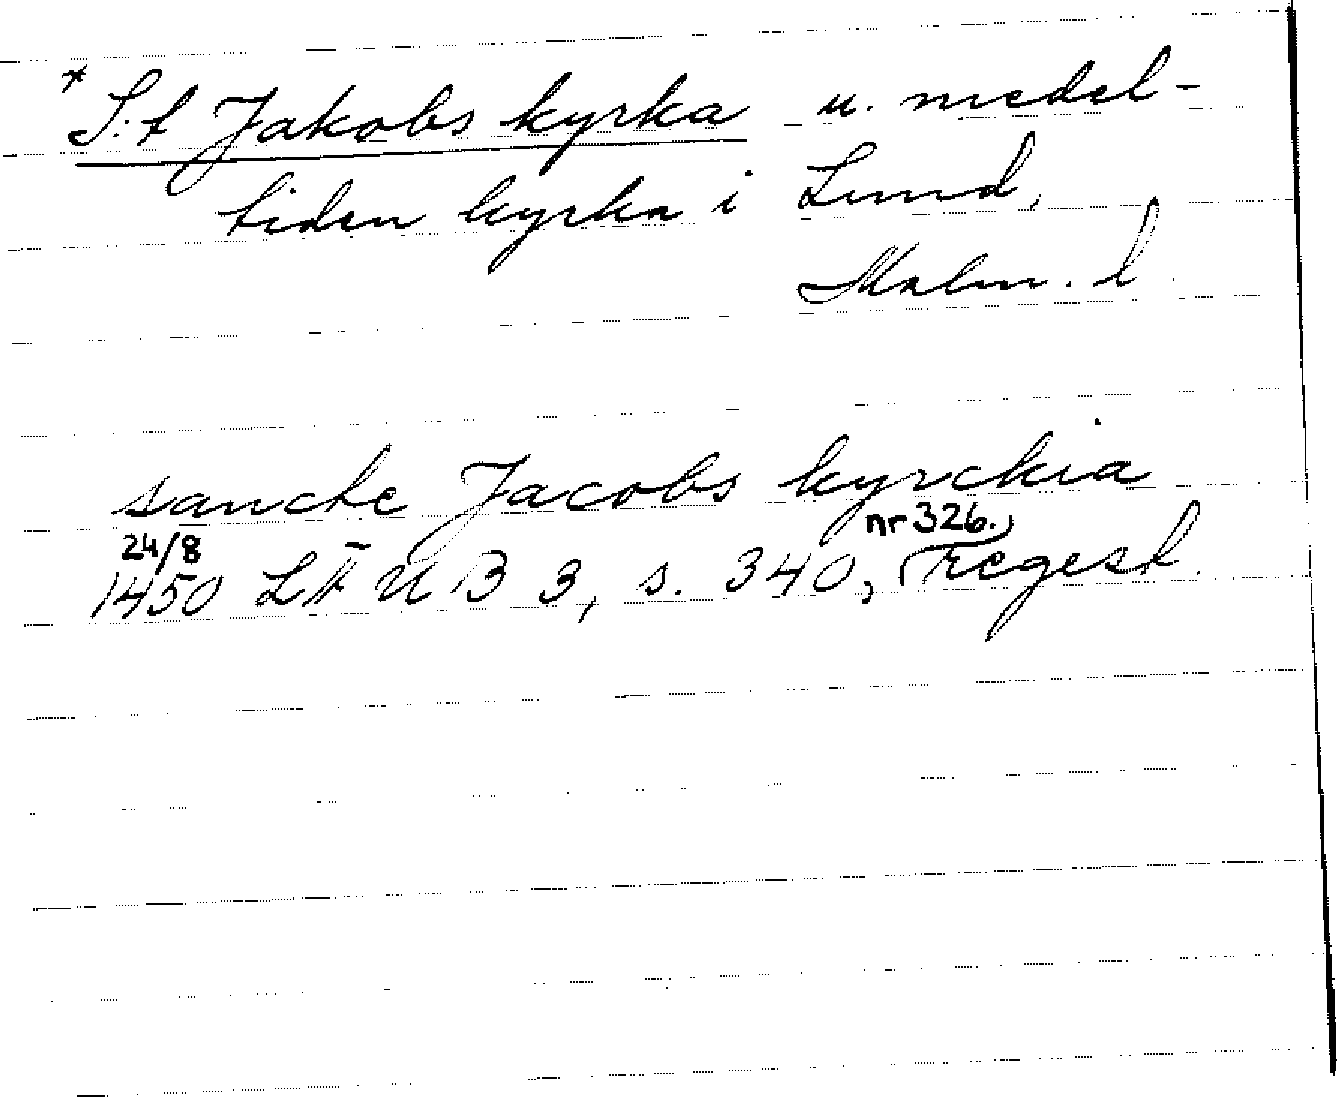 * S:t Jakobs kyrka u. medel-
tiden kyrka i Lund,
Malm. l.
sancte Jacobs kyrckia
24/8 nr 326.,
1450 LÄUB 3, s. 340, Regest.